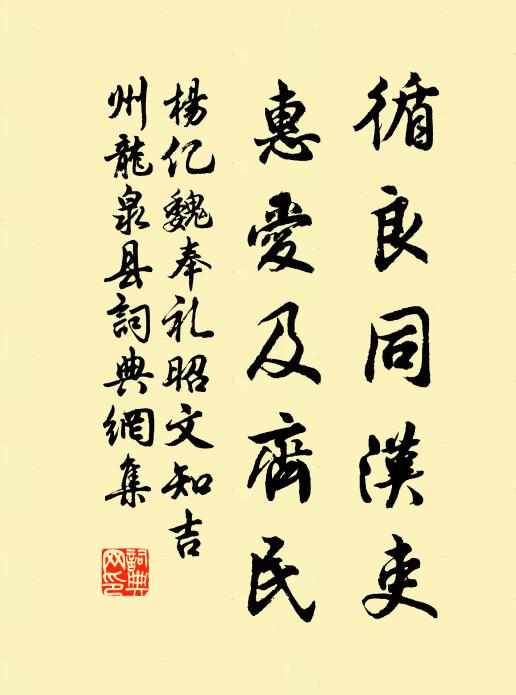 循良同漢吏
惠愛及齊民
楊亿魏奉礼昭文知吉
州龍泉县詞典網集
詞典网印